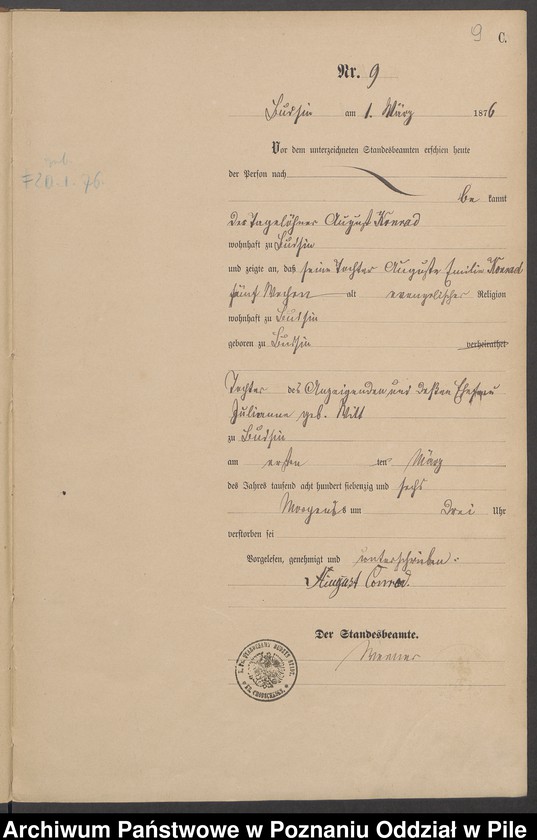 9 C.
Nr. 9
Budsin am 1. März 1876
Vor dem unterzeichneten Standesbeamten erschien heute
der Person nach
be kannt
der Tagelöhner August Konrad
wohnhaft zu Budsin
und zeigte an, daß seine Tochter Auguste Emilie Konrad
fünf Wochen alt evangelischer Religion
wohnhaft zu Budsin
geboren zu Budsin verheirathet
Tochter des Anzeigenden und dessen Ehefrau
Julianne geb. Witt
zu Budsin
am ersten ten März
des Jahres tausend acht hundert siebenzig und sechs
Morgens um Drei Uhr
verstorben sei
Vorgelesen, genehmigt und unterschrieben.
August Conrad.
Der Standesbeamte.
Werner
F 20.1.76.
KR. CHODZIESEN.
Archiwum Państwowe w Poznaniu Oddział w Pile